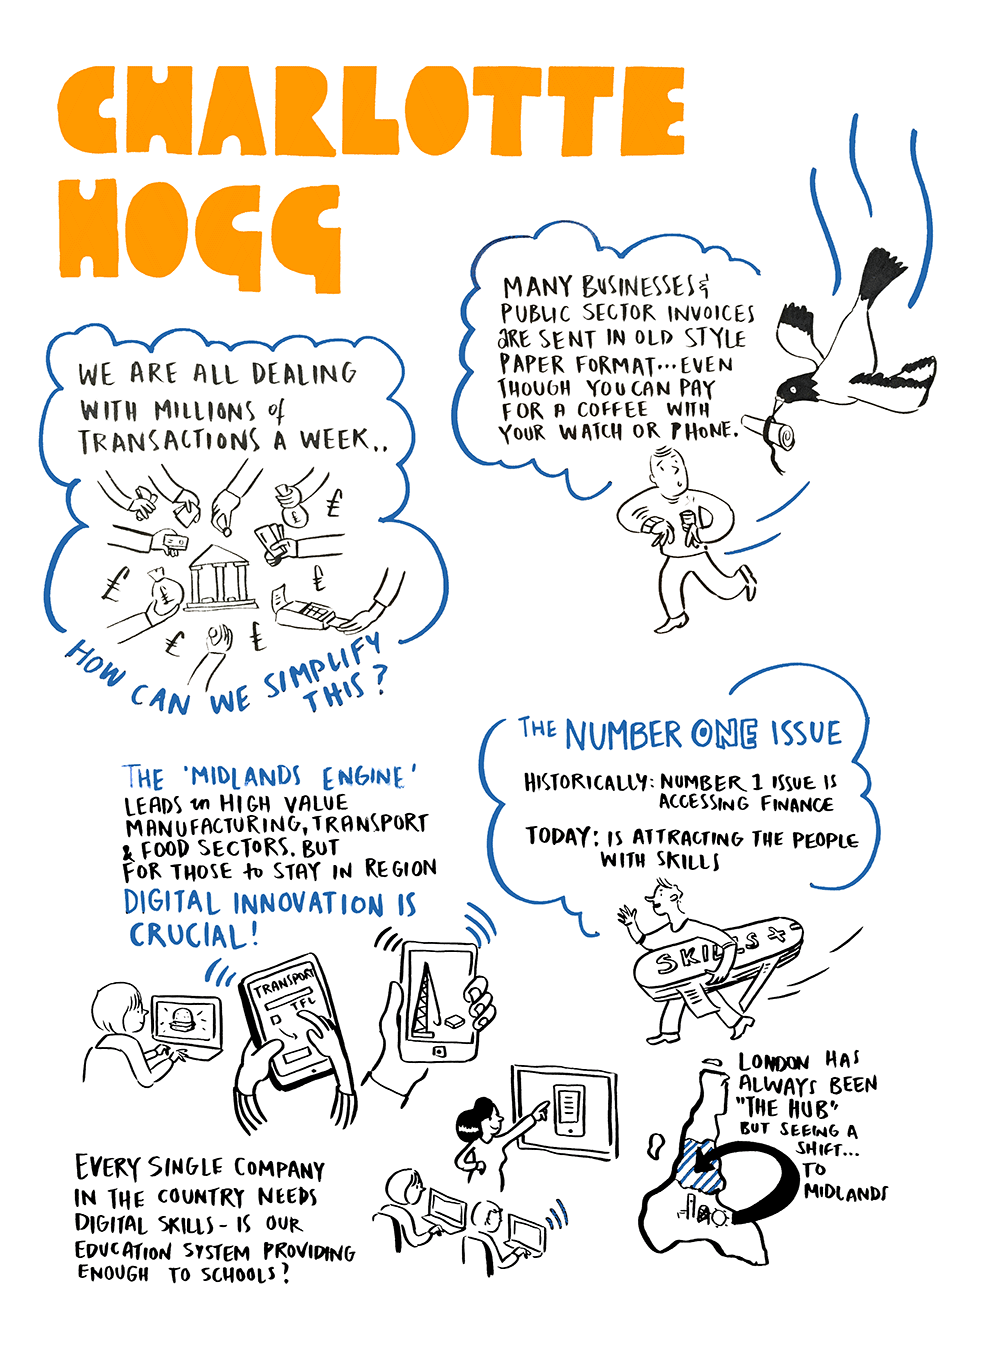 CHARLOTTE
HOGG
WE ARE ALL DEALING
WITH MILLIONS of
TRANSACTIONS A WEEK..
£
£
£
£
£
£
£
HOW CAN WE SIMPLIFY
THIS?
MANY BUSINESSES &
PUBLIC SECTOR INVOICES
ARE SENT IN OLD STYLE
PAPER FORMAT...EVEN
THOUGH YOU CAN PAY
FOR A COFFEE WITH
YOUR WATCH OR PHONE.
THE NUMBER ONE ISSUE
HISTORICALLY: NUMBER 1 ISSUE IS
ACCESSING FINANCE
TODAY: IS ATTRACTING THE PEOPLE
WITH SKILLS
SKILLS +
THE 'MIDLANDS ENGINE'
LEADS in HIGH VALUE
MANUFACTURING, TRANSPORT
& FOOD SECTORS. BUT
FOR THOSE to STAY IN REGION
DIGITAL INNOVATION IS
CRUCIAL!
TRANSPORT
TFL
LONDON HAS
ALWAYS BEEN
"THE HUB"
BUT SEEING A
SHIFT...
TO
MIDLANDS
EVERY SINGLE COMPANY
IN THE COUNTRY NEEDS
DIGITAL SKILLS - IS OUR
EDUCATION SYSTEM PROVIDING
ENOUGH TO SCHOOLS?